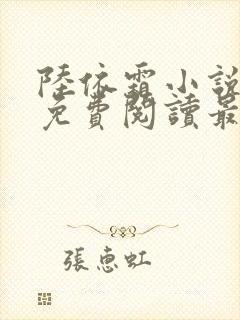 陸依霜小說
免費閱讀最
張惠虹